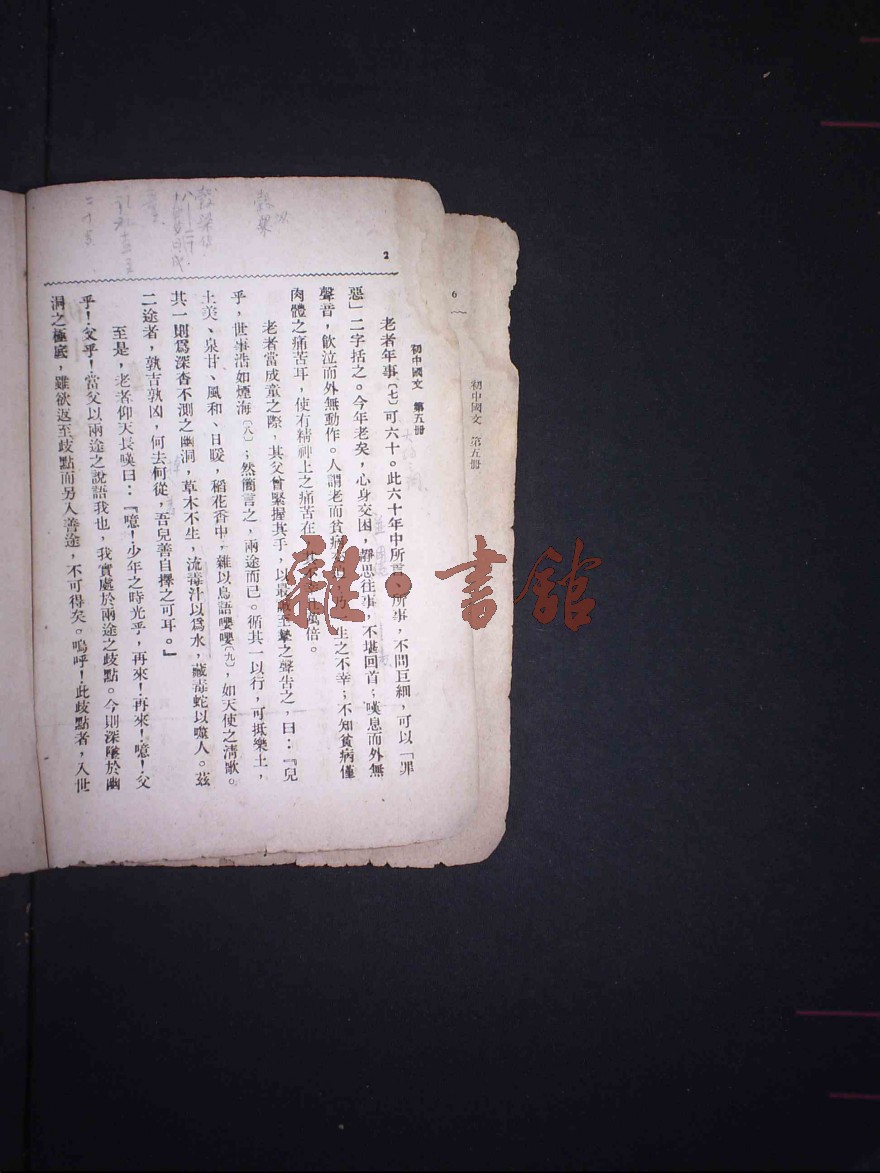 6
初中國文　第五册
2
初中國文　第五册
老者年事〔七〕可六十。此六十年中所事，不問巨細，可以「罪
惡」二字括之。今年老矣，心身交困，靜思往事，不堪回首；嘆息而外無
聲音，飮泣而外無動作。人謂老而貧病生之不幸；不知貧病僅
肉體之痛苦耳，使有精神上之痛苦在萬倍。
老者當成童之際，其父曾緊握其手，以最至摯之聲告之，曰：『兒
乎，世事浩如煙海〔八〕；然簡言之，兩途而已。循其一以行，可抵樂土，
土美、泉甘、風和、日暖，稻花香中，雜以鳥語嚶嚶〔九〕，如天使之淸歌。
其一則爲深杳不測之幽洞，草木不生，流毒汁以爲水，藏毒蛇以噬人。茲
二途者，孰吉孰凶，何去何從，吾兒善自擇之可耳。』
至是，老者仰天長嘆曰：『噫！少年之時光乎，再來！再來！噫！父
乎！父乎！當父以兩途之說語我也，我實處於兩途之歧點。今則深墜於幽
洞之極底，雖欲返至歧點而另入善途，不可得矣。嗚呼！此歧點者，入世
雜·書館